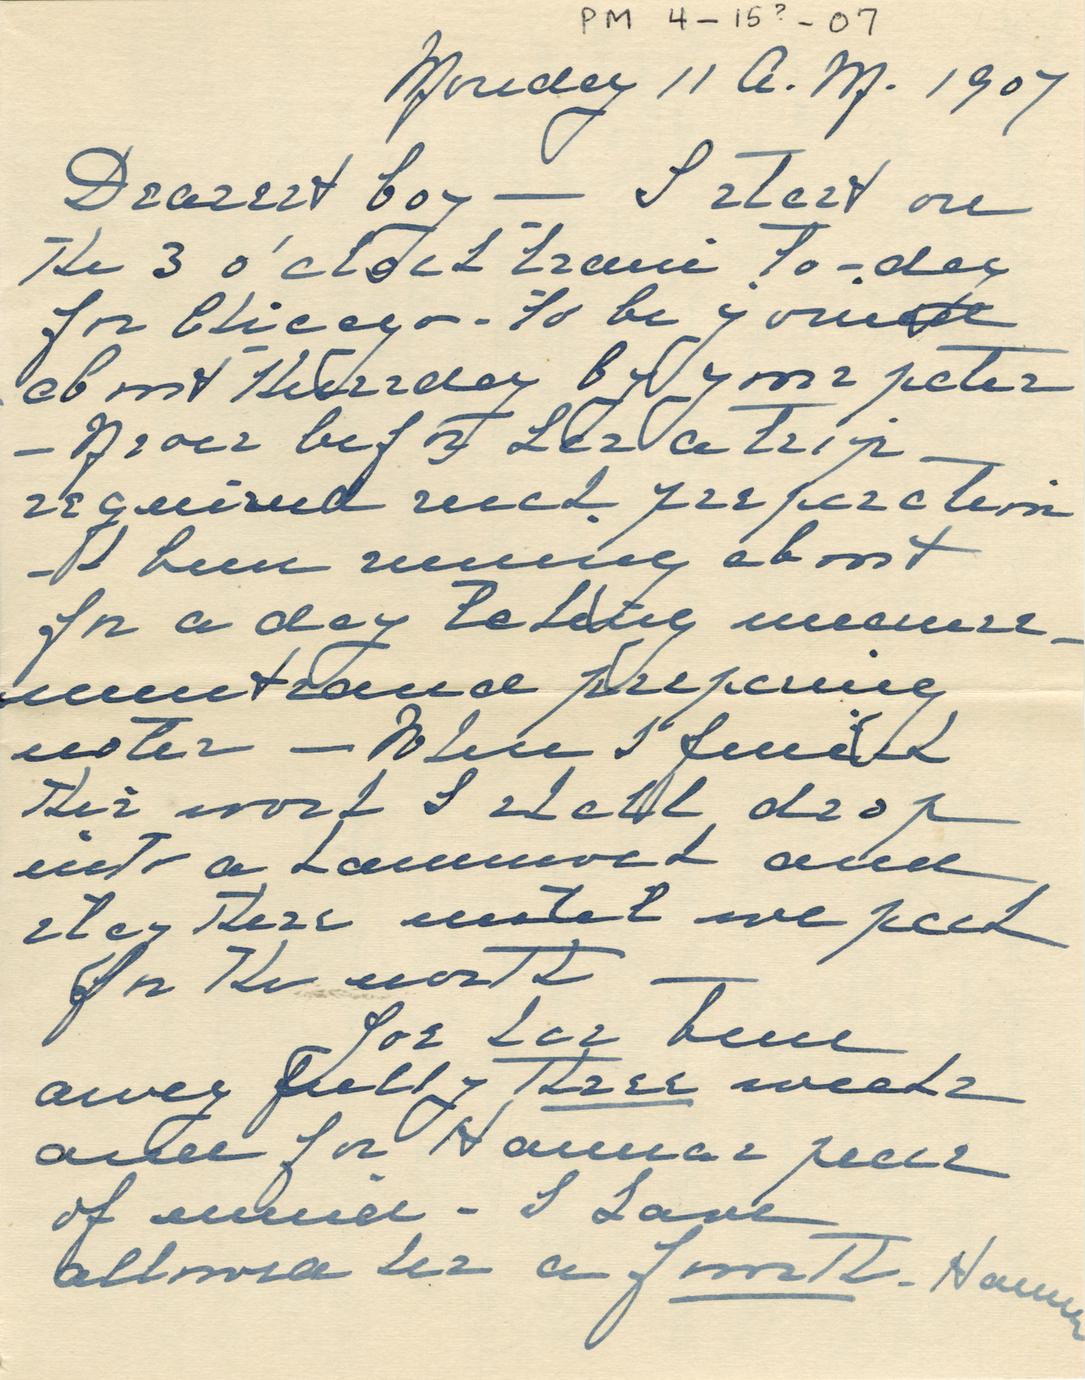 PM 4-15?-07
Monday 11 A. M. 1907
Dearest boy — I start on
the 3 o'clock train to-day
for Chicago - to be joined
about Thursday by your pater
- Never before has a trip
required such preparation
- I been running about
for a day taking measure-
ments and preparing
notes — When I finish
this work I shall drop
into a hammock and
stay there until we pack
for the north —
Joe has been
away fully three weeks
and for Hannas peace
of mind - I have
allowed her a fourth - Hanna